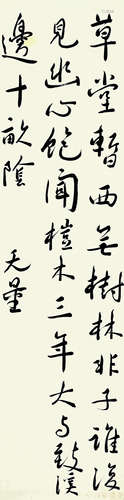 草堂暫西無樹林非子誰復
見幽心飽聞榿木三年大与致溪
邊十畝陰